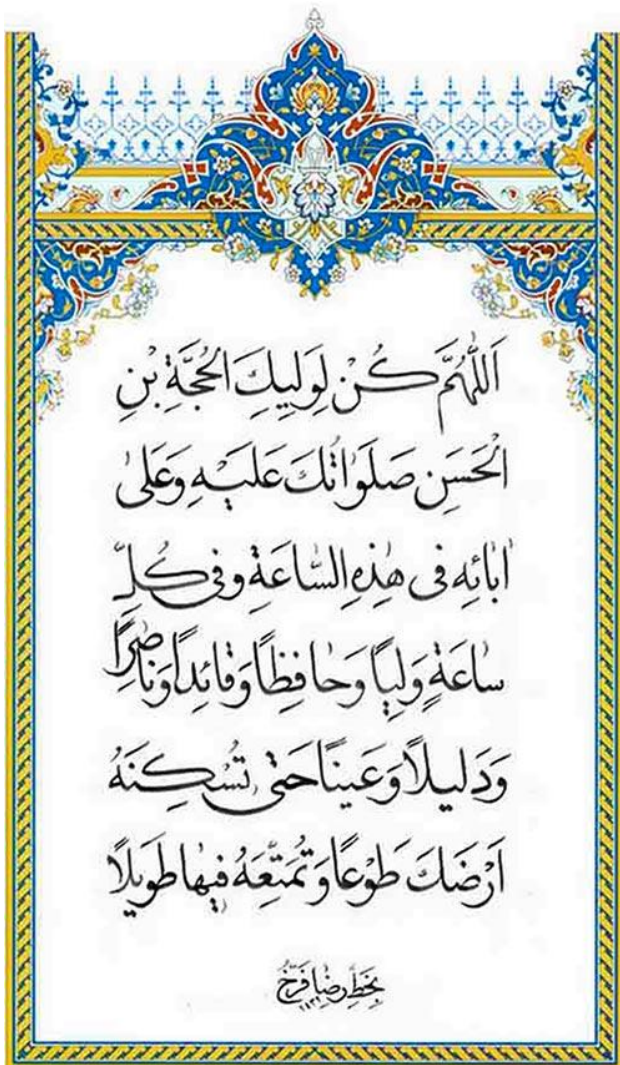 اَللّٰهُمَّ كُنْ لِوَلِيِكَ الْحُجَّةِ بْنِ
الْحَسَنِ صَلَوٰاتُكَ عَلَيْهِ وَعَلىٰ
اٰبٰائِهِ فى هٰذِهِ السّٰاعَةِ وَفى كُلِّ
سٰاعَةٍ وَلِيًا وَحٰافِظًا وَقٰائِدًا وَنٰاصِرًا
وَدَليلًا وَعَينًا حَتىّٰ تُسْكِنَهُ
اَرْضَكَ طَوْعًا وَتُمَتِّعَهُ فيهٰا طَويلًا
بخطِّ رضٰا فرّخ